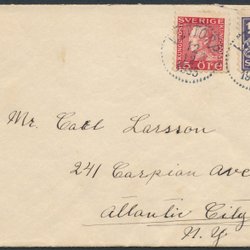 SVERIGE
15 ÖRE
Mr. Carl Larsson
241 Carpian Ave
Atlantic City
N.Y.